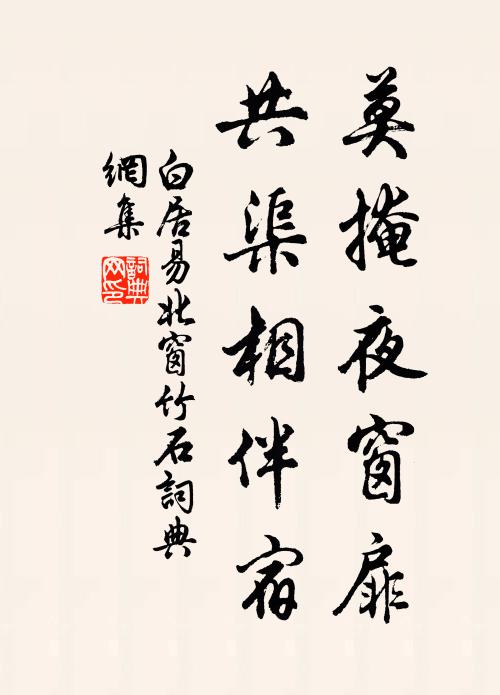 莫掩夜窗扉
共渠相伴宿
白居易北窗竹石詞典
網集
詞典
网印